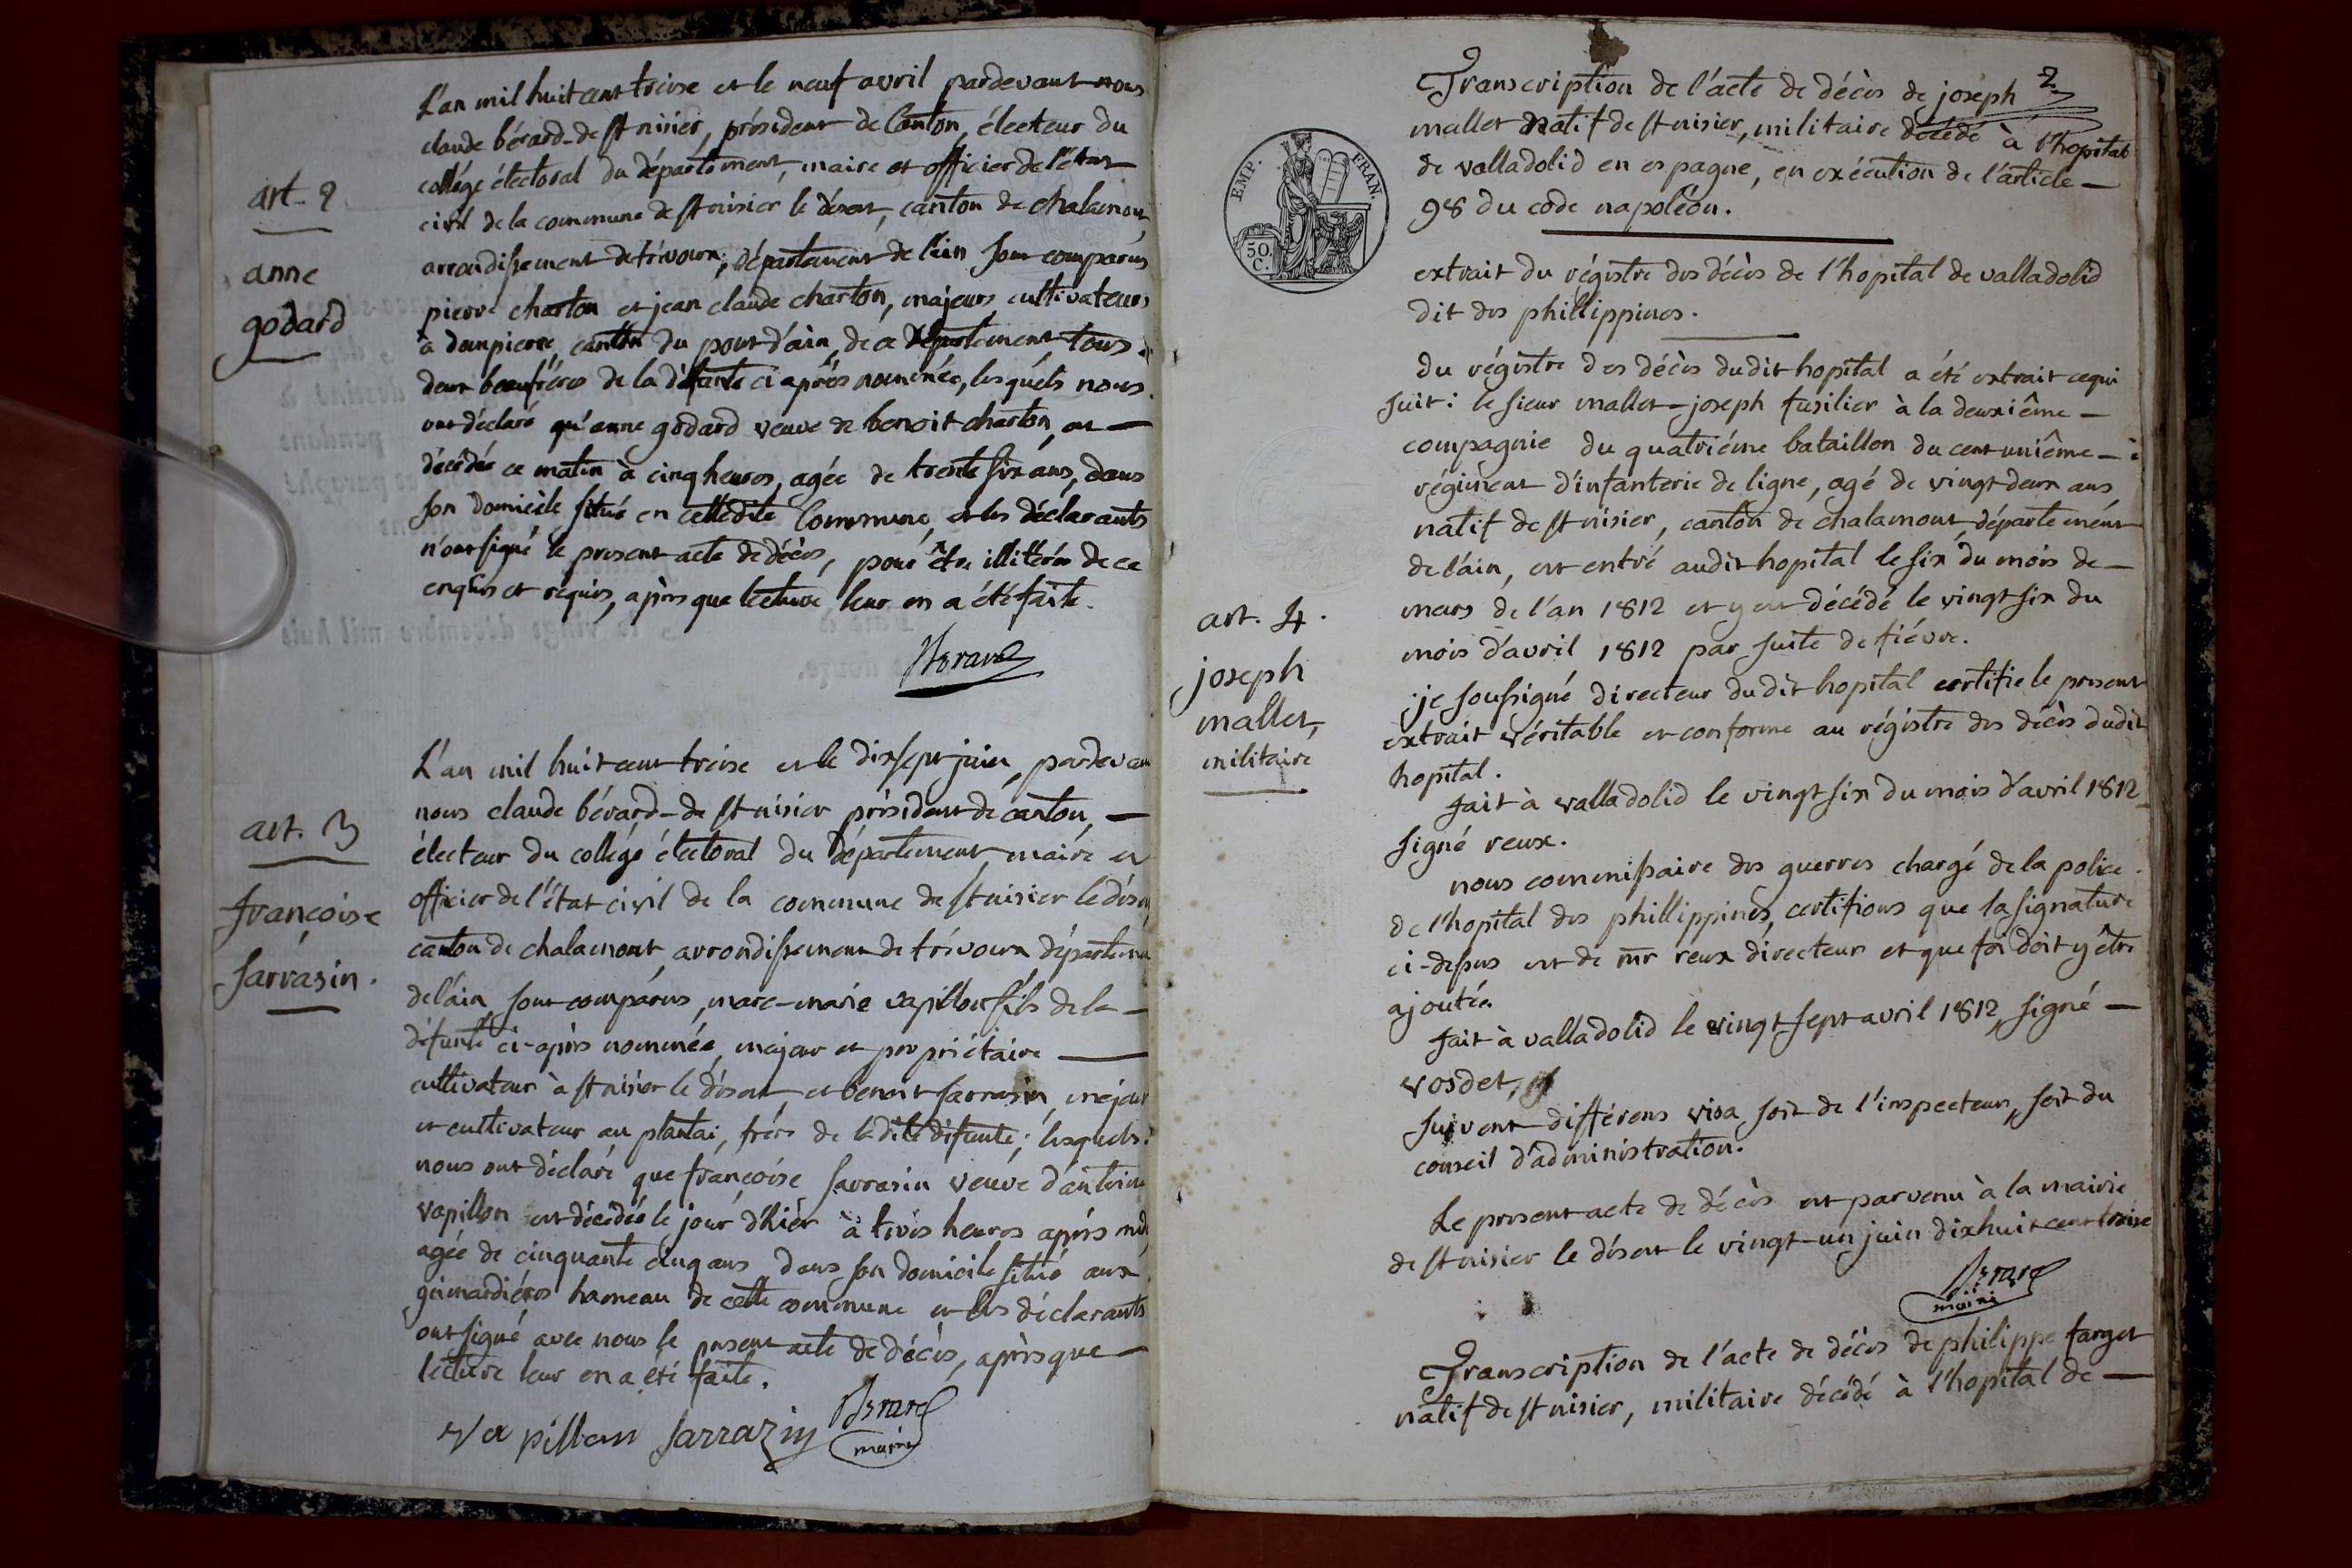 L'an mil huit cent treise et le neuf avril pardevant nous
claude bérard-de st nisier, président de Canton, électeur du
collége électoral du département, maire et officier de l'état
civil de la commune de st nisier le désert, canton de chalamont,
arrondissement de trévoux, département de l'ain sont comparus
pierre charton et jean claude charton, majeurs cultivateurs
à dompierre, canton du pont d'ain, de ce département, tous
deux beaufréres de la défunte ci après nommée, lesquels nous
ont déclaré qu'anne godard veuve de benoit charton, est
décédée ce matin à cinq heures, agée de trente six ans, dans
son domicile situé en cettedite Commune, et les déclarants
n'ont signé le present acte de décès, pour être illitérés de ce
enquis et requis, après que lecture leur en a été faite.
art. 2
anne
godard
Berard
L'an mil huit cent treise et le dixsept juin, pardevant
nous claude bérard-de st nisier président de canton,
électeur du collége électoral du département, maire et
officier de l'état civil de la commune de st nisier le désert
canton de chalamont, arrondissement de trévoux département
de l'ain sont comparus, marc-marie vapillon fils de la
défunte ci-après nommée, majeur et propriétaire
cultivateur à st nisier le désert, et benoit sarrasin, majeur
et cultivateur au plantai, frére de ladite défunte; lesquels
nous ont déclaré que françoise sarrasin veuve d'antoine
vapillon est décédée le jour d'hier à trois heures après midi,
agée de cinquante cinq ans dans son domicile situé aux
guimardiéres hameau de cette commune et les déclarants
ont signé avec nous le present acte de décès, après que
lecture leur en a été faite.
art. 3
françoise
sarrasin.
Vapillon Sarrazin Berard
maire
Transcription de l'acte de décès de joseph
mallet natif de st nisier, militaire décédé à l'hopital
de valladolid en espagne, en exécution de l'article
98 du code napoléon.
EMP. FRAN.
50
C.
extrait du régistre des décès de l'hopital de valladolid
dit des phillippines.
du régistre des décès dudit hopital a été extrait cequi
suit: le sieur mallet-joseph fusilier à la deuxiême
compagnie du quatriéme bataillon du cent uniême
régiment d'infanterie de ligne, agé de vingt deux ans
natif de st nisier, canton de chalamont, département
de l'ain, est entré audit hopital le six du mois de
mars de l'an 1812 et y est décédé le vingt six du
mois d'avril 1812 par suite de fiévre.
je soussigné directeur dudit hopital certifie le present
extrait véritable et conforme au régistre des décès dudit
hopital.
art. 4.
joseph
mallet,
militaire
fait à valladolid le vingt six du mois d'avril 1812
signé reux.
nous commissaire des guerres chargé de la police
de l'hopital des phillippines, certifions que la signature
ci-dessus est de mr reux directeur et que foi doit y être
ajoutée.
fait à valladolid le vingt sept avril 1812, signé
vosdet,
suivent différens visa soit de l'inspecteur, soit du
conseil d'administration.
Le present acte de décès est parvenu à la mairie
de st nisier le désert le vingt-un juin dixhuit cent treise
Berard
maire
Transcription de l'acte de décès de philippe farget
natif de st nisier, militaire décédé à l'hopital de